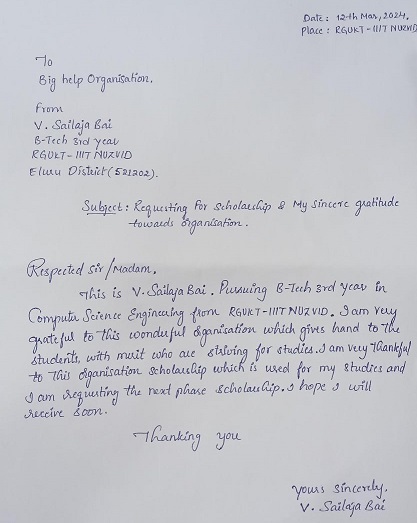 Date: 12th Mar, 2024.
Place: RGUKT-IIIT NUZVID
To
Big help Organisation.
From
V. Sailaja Bai
B-Tech 3rd year
RGUKT-IIIT NUZVID
Eluru District (521202).
Subject: Requesting For scholarship & My sincere gratitude
towards organisation.
Respected Sir/Madam,
This is V. Sailaja Bai. Pursuing B-Tech 3rd year in
Computer Science Engineering from RGUKT-IIIT NUZVID. I am very
grateful to this wonderful organisation which gives hand to the
students, with merit who are striving for studies. I am very thankful
to this organisation scholarship which is used for my studies and
I am requesting the next phase scholarship. I hope I will
receive soon.
Thanking you
Yours Sincerely,
V. Sailaja Bai